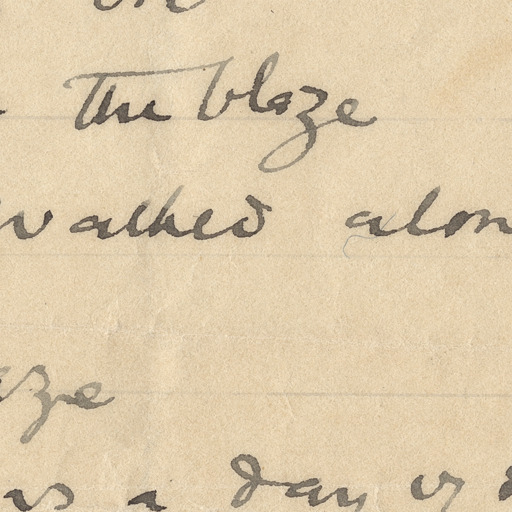 the blaze
walked alon
aze
as a day of